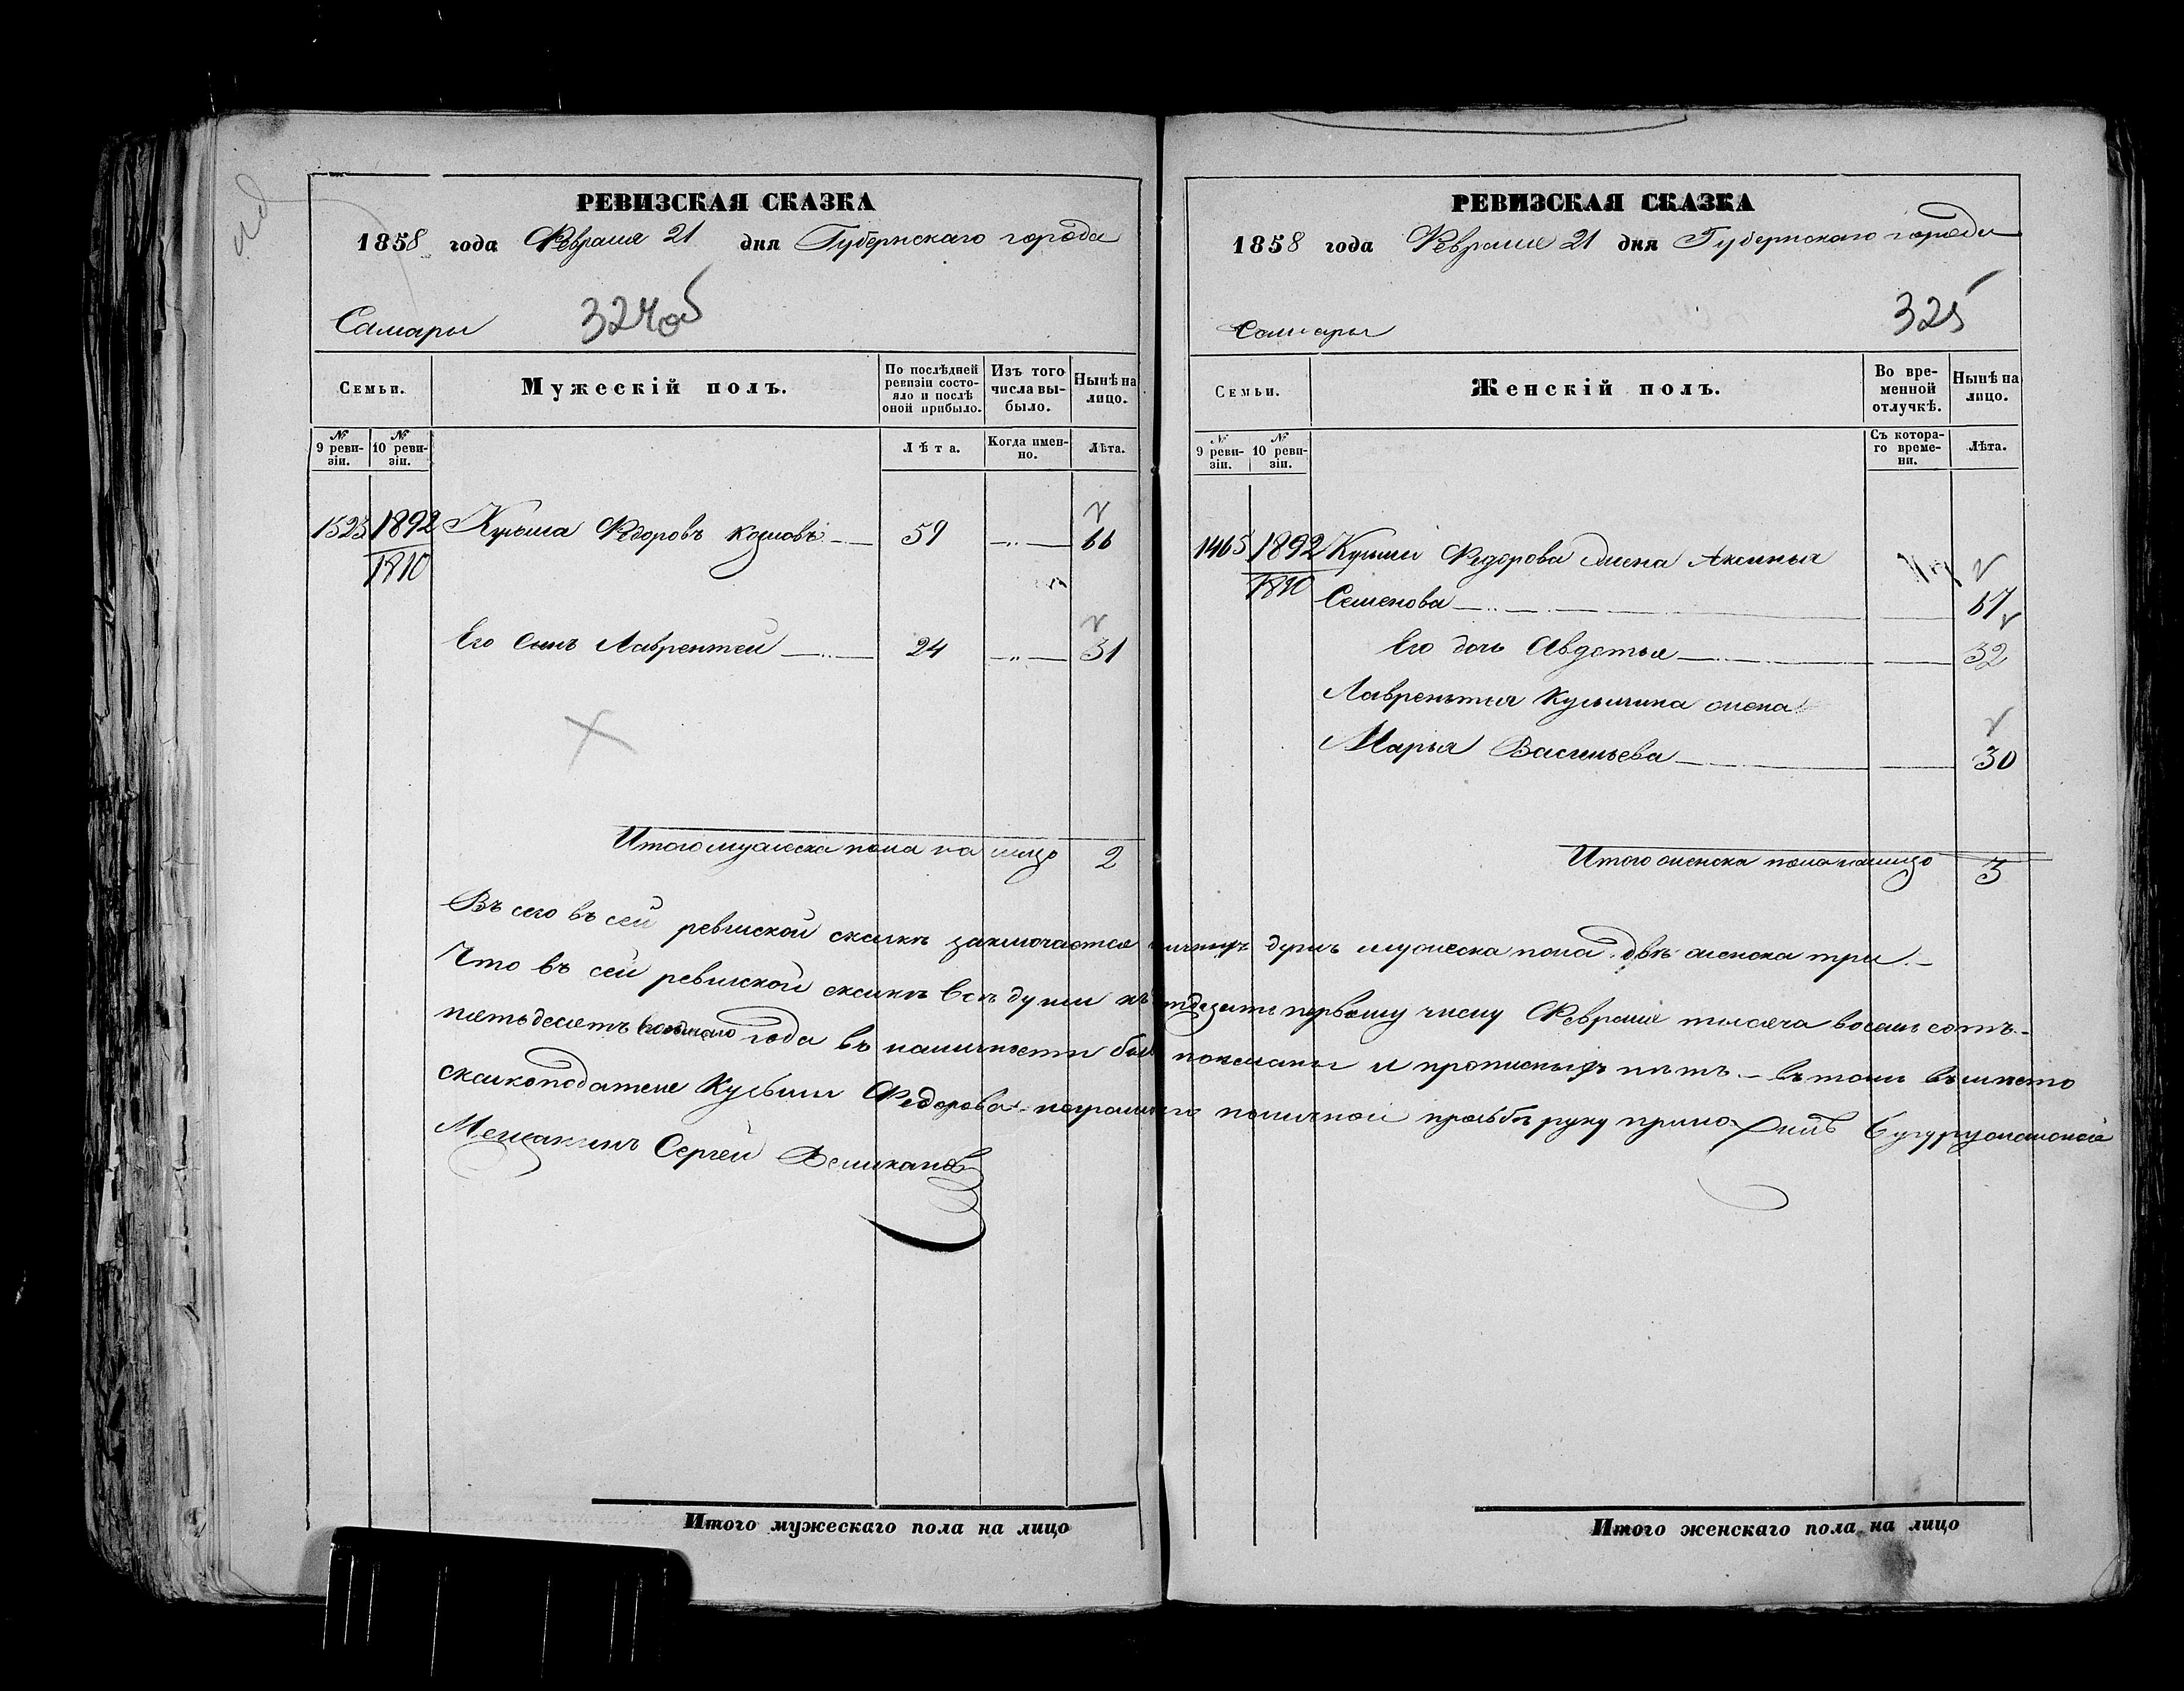 РЕВИЗСКАЯ СКАЗКА
1858 года Февраля 21 дня Губернскаго города
Самары 324об
Семьи. Мужескій полъ. По послѣдней ревизіи состояло и послѣ оной прибыло. Изъ того числа выбыло. Нынѣ на лицо.
№ 9 ревизіи. № 10 ревизіи. Лѣта. Когда именно. Лѣта.
1523 1892 Кузьма Федоровъ Козловъ 59 66
1810
Его Сынъ Лаврентей 24 31
Итого мужеска пола на лицо 2
РЕВИЗСКАЯ СКАЗКА
1858 года Февраля 21 дня Губернскаго города
Самары 325
Семьи. Женскій полъ. Во временной отлучкѣ. Нынѣ на лицо.
№ 9 ревизіи. № 10 ревизіи. Съ котораго времени. Лѣта.
1465 1892 Кузьмы Федорова жена Аксинья
1810 Семенова 67
Его дочь Авдотья 32
Лаврентья Кузьмина жена
Марья Васильева 30
Итого женска пола налицо 3
Въ сего въ сей ревиской скаскѣ заключается душъ мужеска пола двѣ женска три
Что въ сей ревиской скаскѣ всѣ души первому числу Февраля тысяча восемь сотъ
пятьдесятъ года въ наличности показаны и прописныхъ нѣтъ въ томъ вместо
скаскоподателя Кузьмы Федорова неграмотнаго поличной прозьбѣ руку приложилъ Бугурусланской
Мещанинъ Сергей Великановъ
Итого мужескаго пола на лицо
Итого женскаго пола на лицо